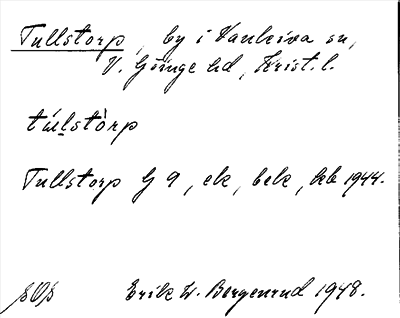 Tullstorp, by i Vankiva sn,
V. Göinge hd, Krist. l.
túlstòrp
Tullstorp G 9, ek, bek, hb 1944.
Erik W. Bergenrud 1948.